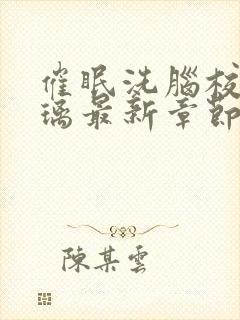 催眠洗腦校
璃最新章節
陳某雲